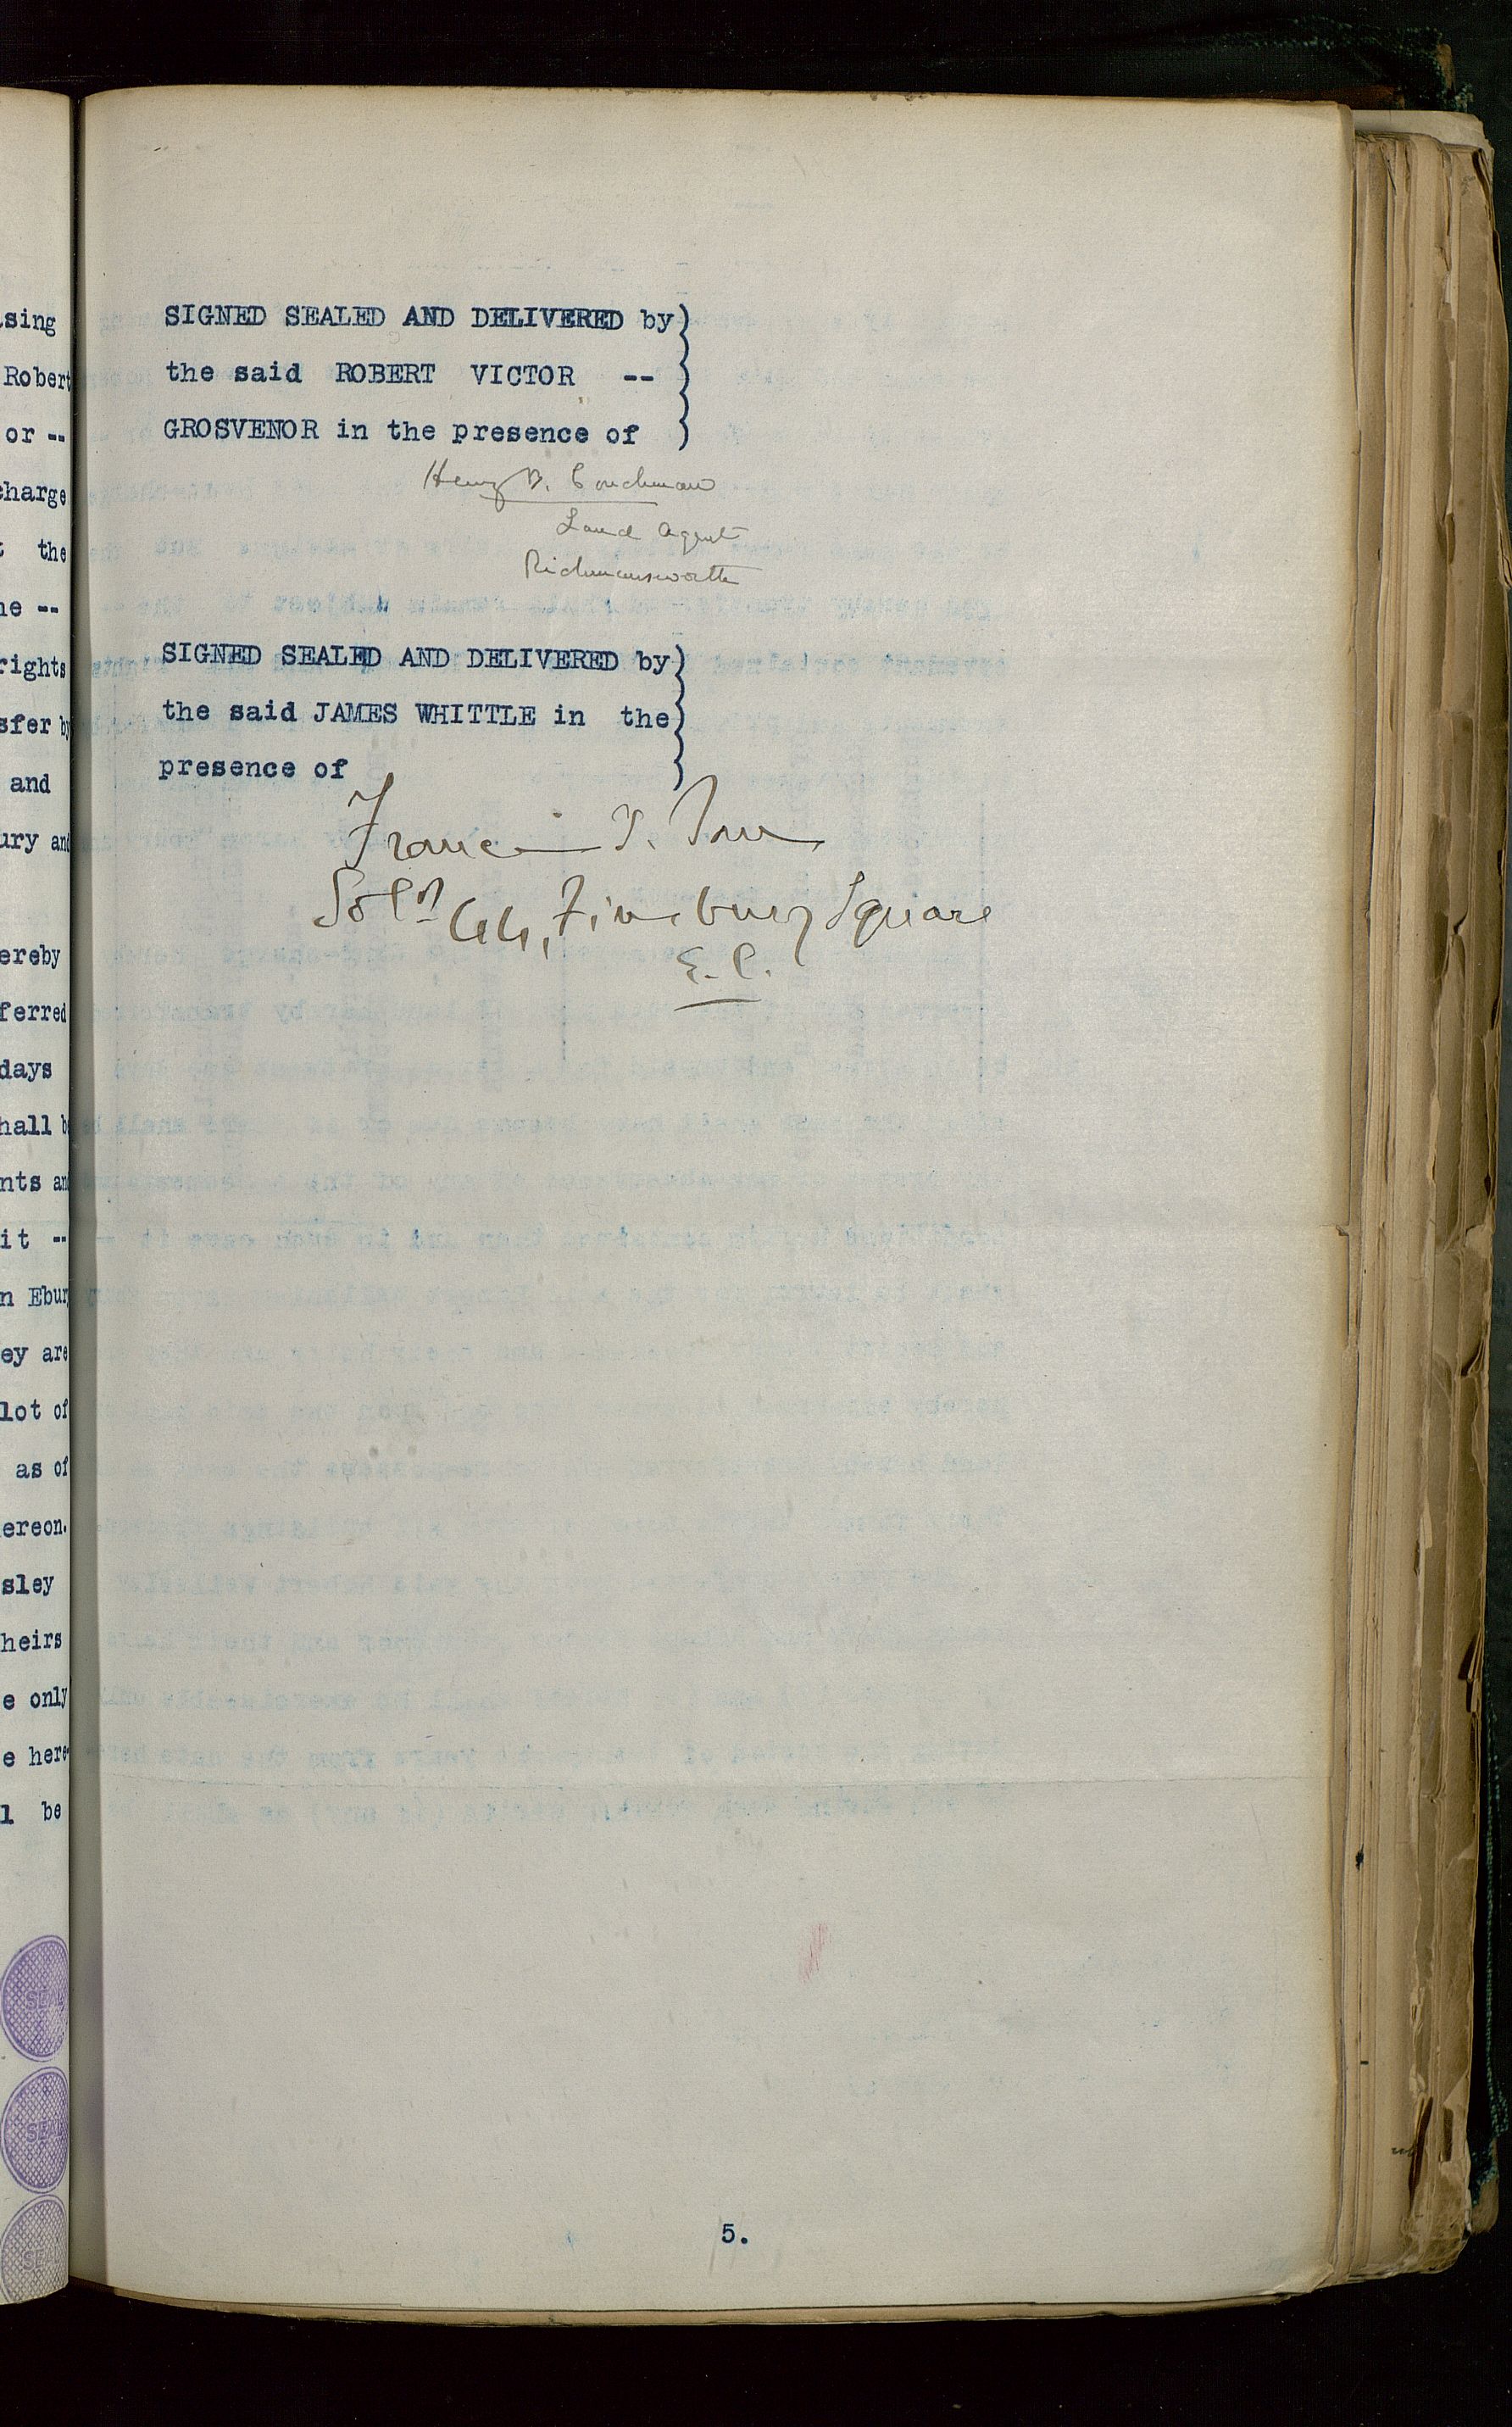 sing
Robert
or --
charge
the
ne --
rights
sfer by
and
ury and
ereby
ferred
days
hall be
nts and
it --
n Ebury
ey are
lot of
as of
ereon.
sley
heirs
e only
e here-
l be
SEAL
SEAL
SEAL
SIGNED SEALED AND DELIVERED by
the said ROBERT VICTOR --
GROSVENOR in the presence of
Henry B. Couchman
Land Agent
Rickmansworth
SIGNED SEALED AND DELIVERED by
the said JAMES WHITTLE in the
presence of
Francis T.
Solr 44, Finsbury Square
E.C.
5.